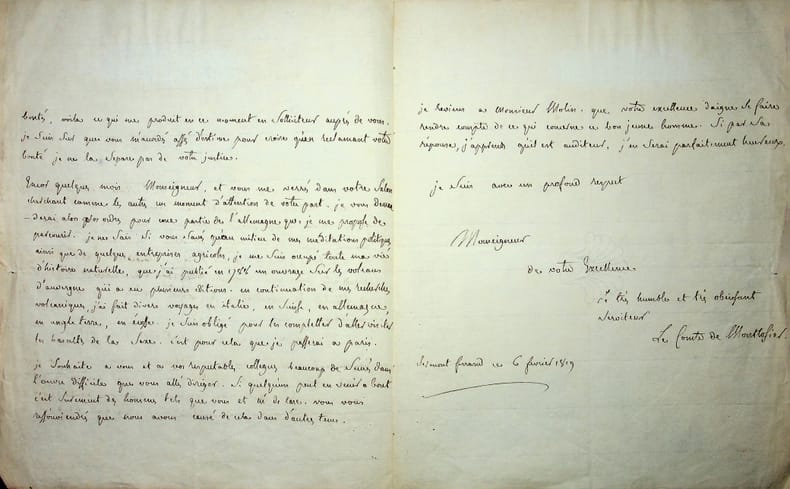 bonté, voila ce qui me produit en ce moment en solliciteur auprès de vous.
je suis sur que vous m'accordés assés d'estime pour croire qu'en reclamant votre
bonté je ne la separe pas de votre justice.
Encor quelques mois Monseigneur, et vous me verrés dans votre salon
cherchant comme les autres un moment d'attention de votre part. je vous deman
-derai alors vos ordres pour une partie de l'allemagne que je me propose de
parcourir. je ne sais si vous savés qu'au milieu de mes meditations politiques
ainsi que de quelques entreprises agricoles, je me suis occupé toute ma vie
d'histoire naturelle, que j'ai publié en 1788 un ouvrage sur les volcans
d'auvergne qui a eu plusieurs éditions. en continuation de mes recherches
volcaniques, j'ai fait divers voyages en italie, en suisse, en allemagne,
en angleterre, en écosse. je suis obligé pour les completter d'aller visiter
les basaltes de la Saxe. c'est pour cela que je passerai a paris.
je souhaite a vous et a vos respectables collegues beaucoup de succès dans
l'œuvre difficile que vous allés diriger. Si quelqu'un peut en venir a bout
c'est surement des hommes tels que vous et de vous vous
ressouviendrés que nous avons causé de cela dans d'autres tems.
je reviens a Monsieur Molin. que votre excellence daigne se faire
rendre compte de ce qui concerne ce bon jeune homme. Si par sa
réponse, j'apprens qu'il est auditeur, j'en serai parfaitement heureux.
je suis avec un profond respect
Monseigneur
de votre Excellence
le très humble et très obéissant
serviteur
Le Comte de Montlosier
clermont ferrand ce 6 fevrier 1819